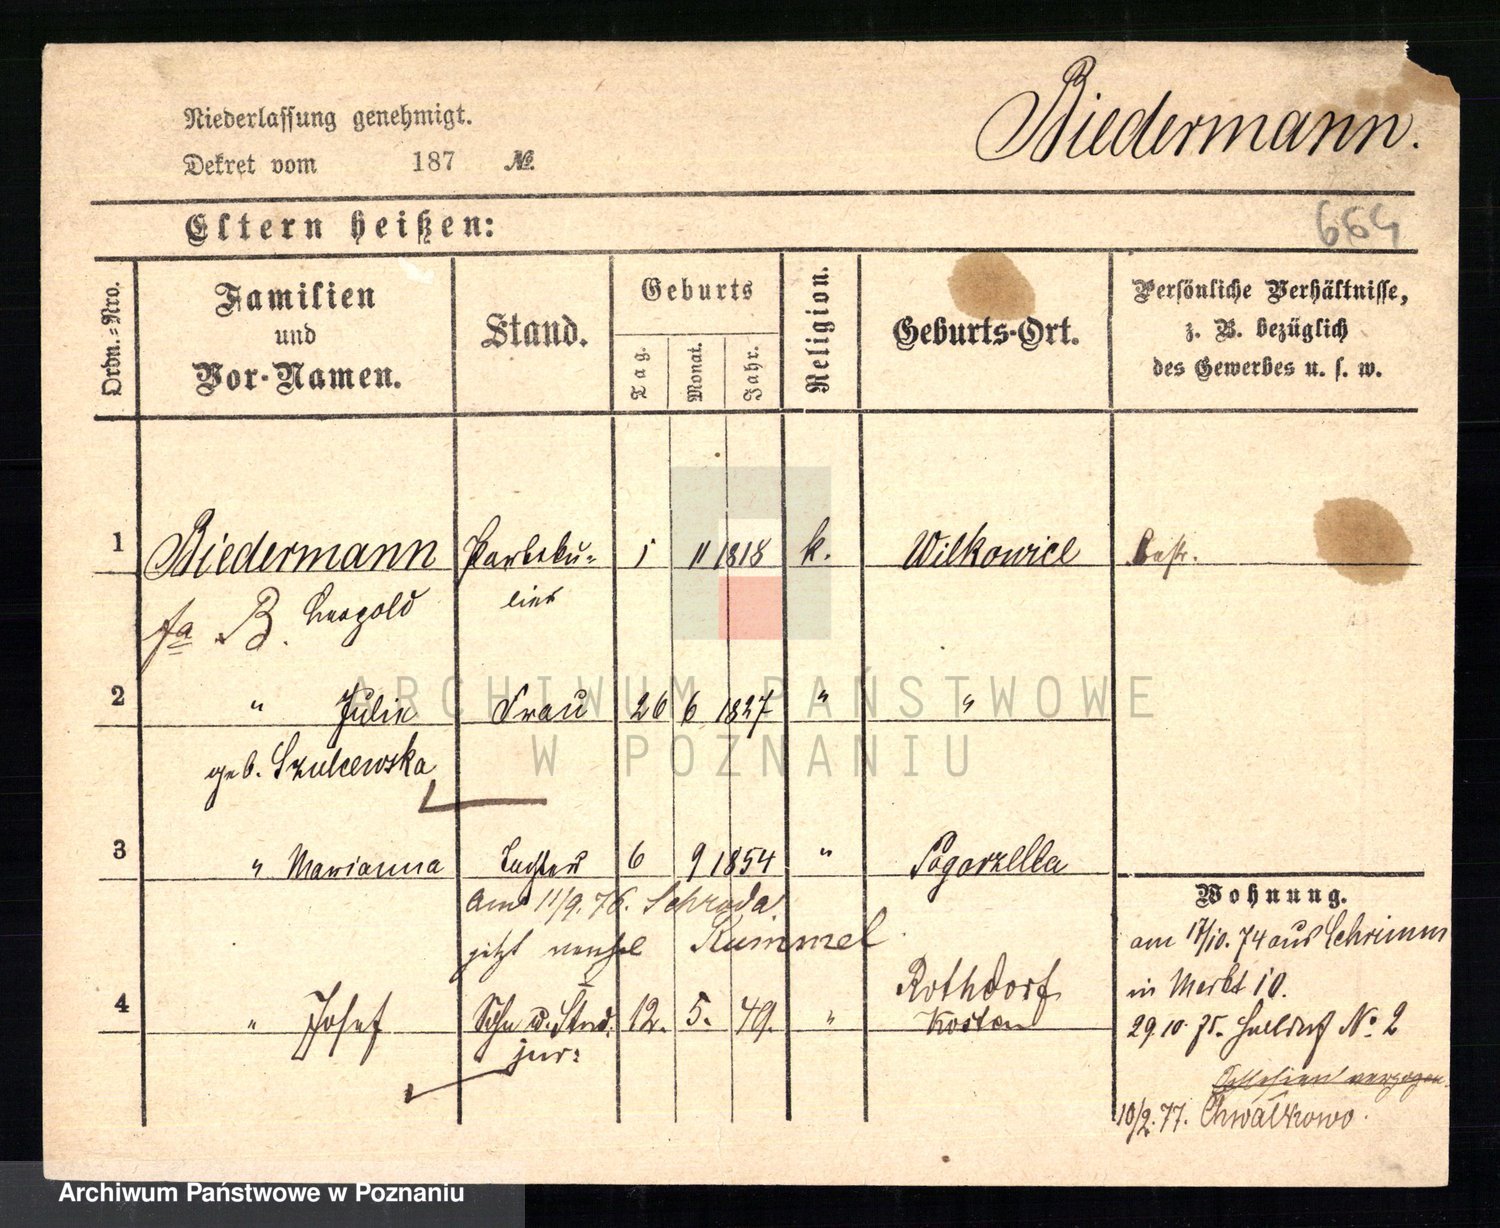 Biedermann.
Niederlassung genehmigt.
Dekret vom 187 №
Eltern heißen:
664
Ordn.-Nro.
Familien
und
Vor-Namen.
Stand.
Geburts
Tag.
Monat.
Jahr.
Religion.
Geburts-Ort.
Persönliche Verhältnisse,
z. B. bezüglich
des Gewerbes u. s. w.
1 Biedermann Partiku- 1 11 1818 k. Wilkowice
B. Leopold lier
2 " Julie Frau 26 6 1827 " "
geb. Szulcewska
3 " Marianna Tochter 6 9 1854 " Pogorzella
am 11/9. 76. Schroda
jetzt Kummel
4 " Josef Sohn u. Stud. 12. 5. 49. " Rothdorf
jur: Kosten
Wohnung.
am 17/10. 74 aus Schrimm
in Markt 10.
29. 10. 75. № 2
verzogen
10/2. 77. Chwałkowo.
ARCHIWUM PAŃSTWOWE
W POZNANIU
Archiwum Państwowe w Poznaniu